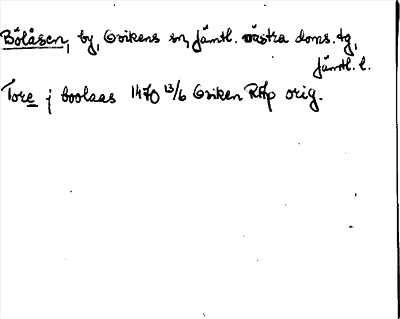 Bölåsen, by, Ovikens sn, Jämtl. västra doms. tg,
Jämtl. l.
Tore j boolaas 1470 13/6 Oviken RAp orig.